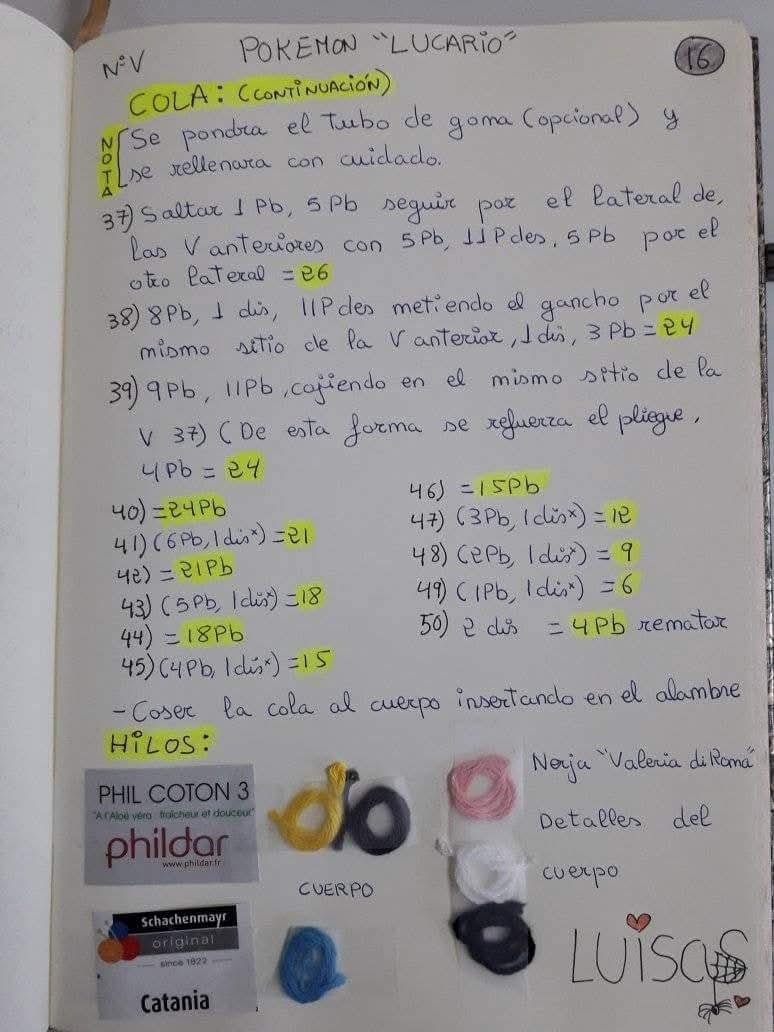 NºV POKEMON "LUCARIO" 16
COLA: (CONTINUACIÓN)
NOTA
Se pondra el tubo de goma (opcional) y
se rellenara con cuidado.
37) Saltar 1 Pb, 5 Pb seguir por el lateral de,
las V anteriores con 5Pb, 11 Pdes, 5 Pb por el
otro lateral = 26
38) 8Pb, 1 dis, 11 Pdes metiendo el gancho por el
mismo sitio de la V anterior, 1 dis, 3 Pb = 24
39) 9Pb, 11Pb, cojiendo en el mismo sitio de la
V 37) (De esta forma se refuerza el pliegue,
4Pb = 24
40) = 24Pb
41) (6Pb, 1dis*) = 21
42) = 21Pb
43) (5Pb, 1dis*) = 18
44) = 18Pb
45) (4Pb, 1dis*) = 15
46) = 15Pb
47) (3Pb, 1dis*) = 12
48) (2Pb, 1dis*) = 9
49) (1Pb, 1dis*) = 6
50) 2 dis = 4Pb rematar
- Coser la cola al cuerpo insertando en el alambre
HILOS:
PHIL COTON 3
"A l'Aloé véra : fraîcheur et douceur"
phildar
www.phildar.fr
CUERPO
Schachenmayr
original
since 1822
Catania
Nerja "Valeria di Roma"
Detalles del
cuerpo
LUISGS